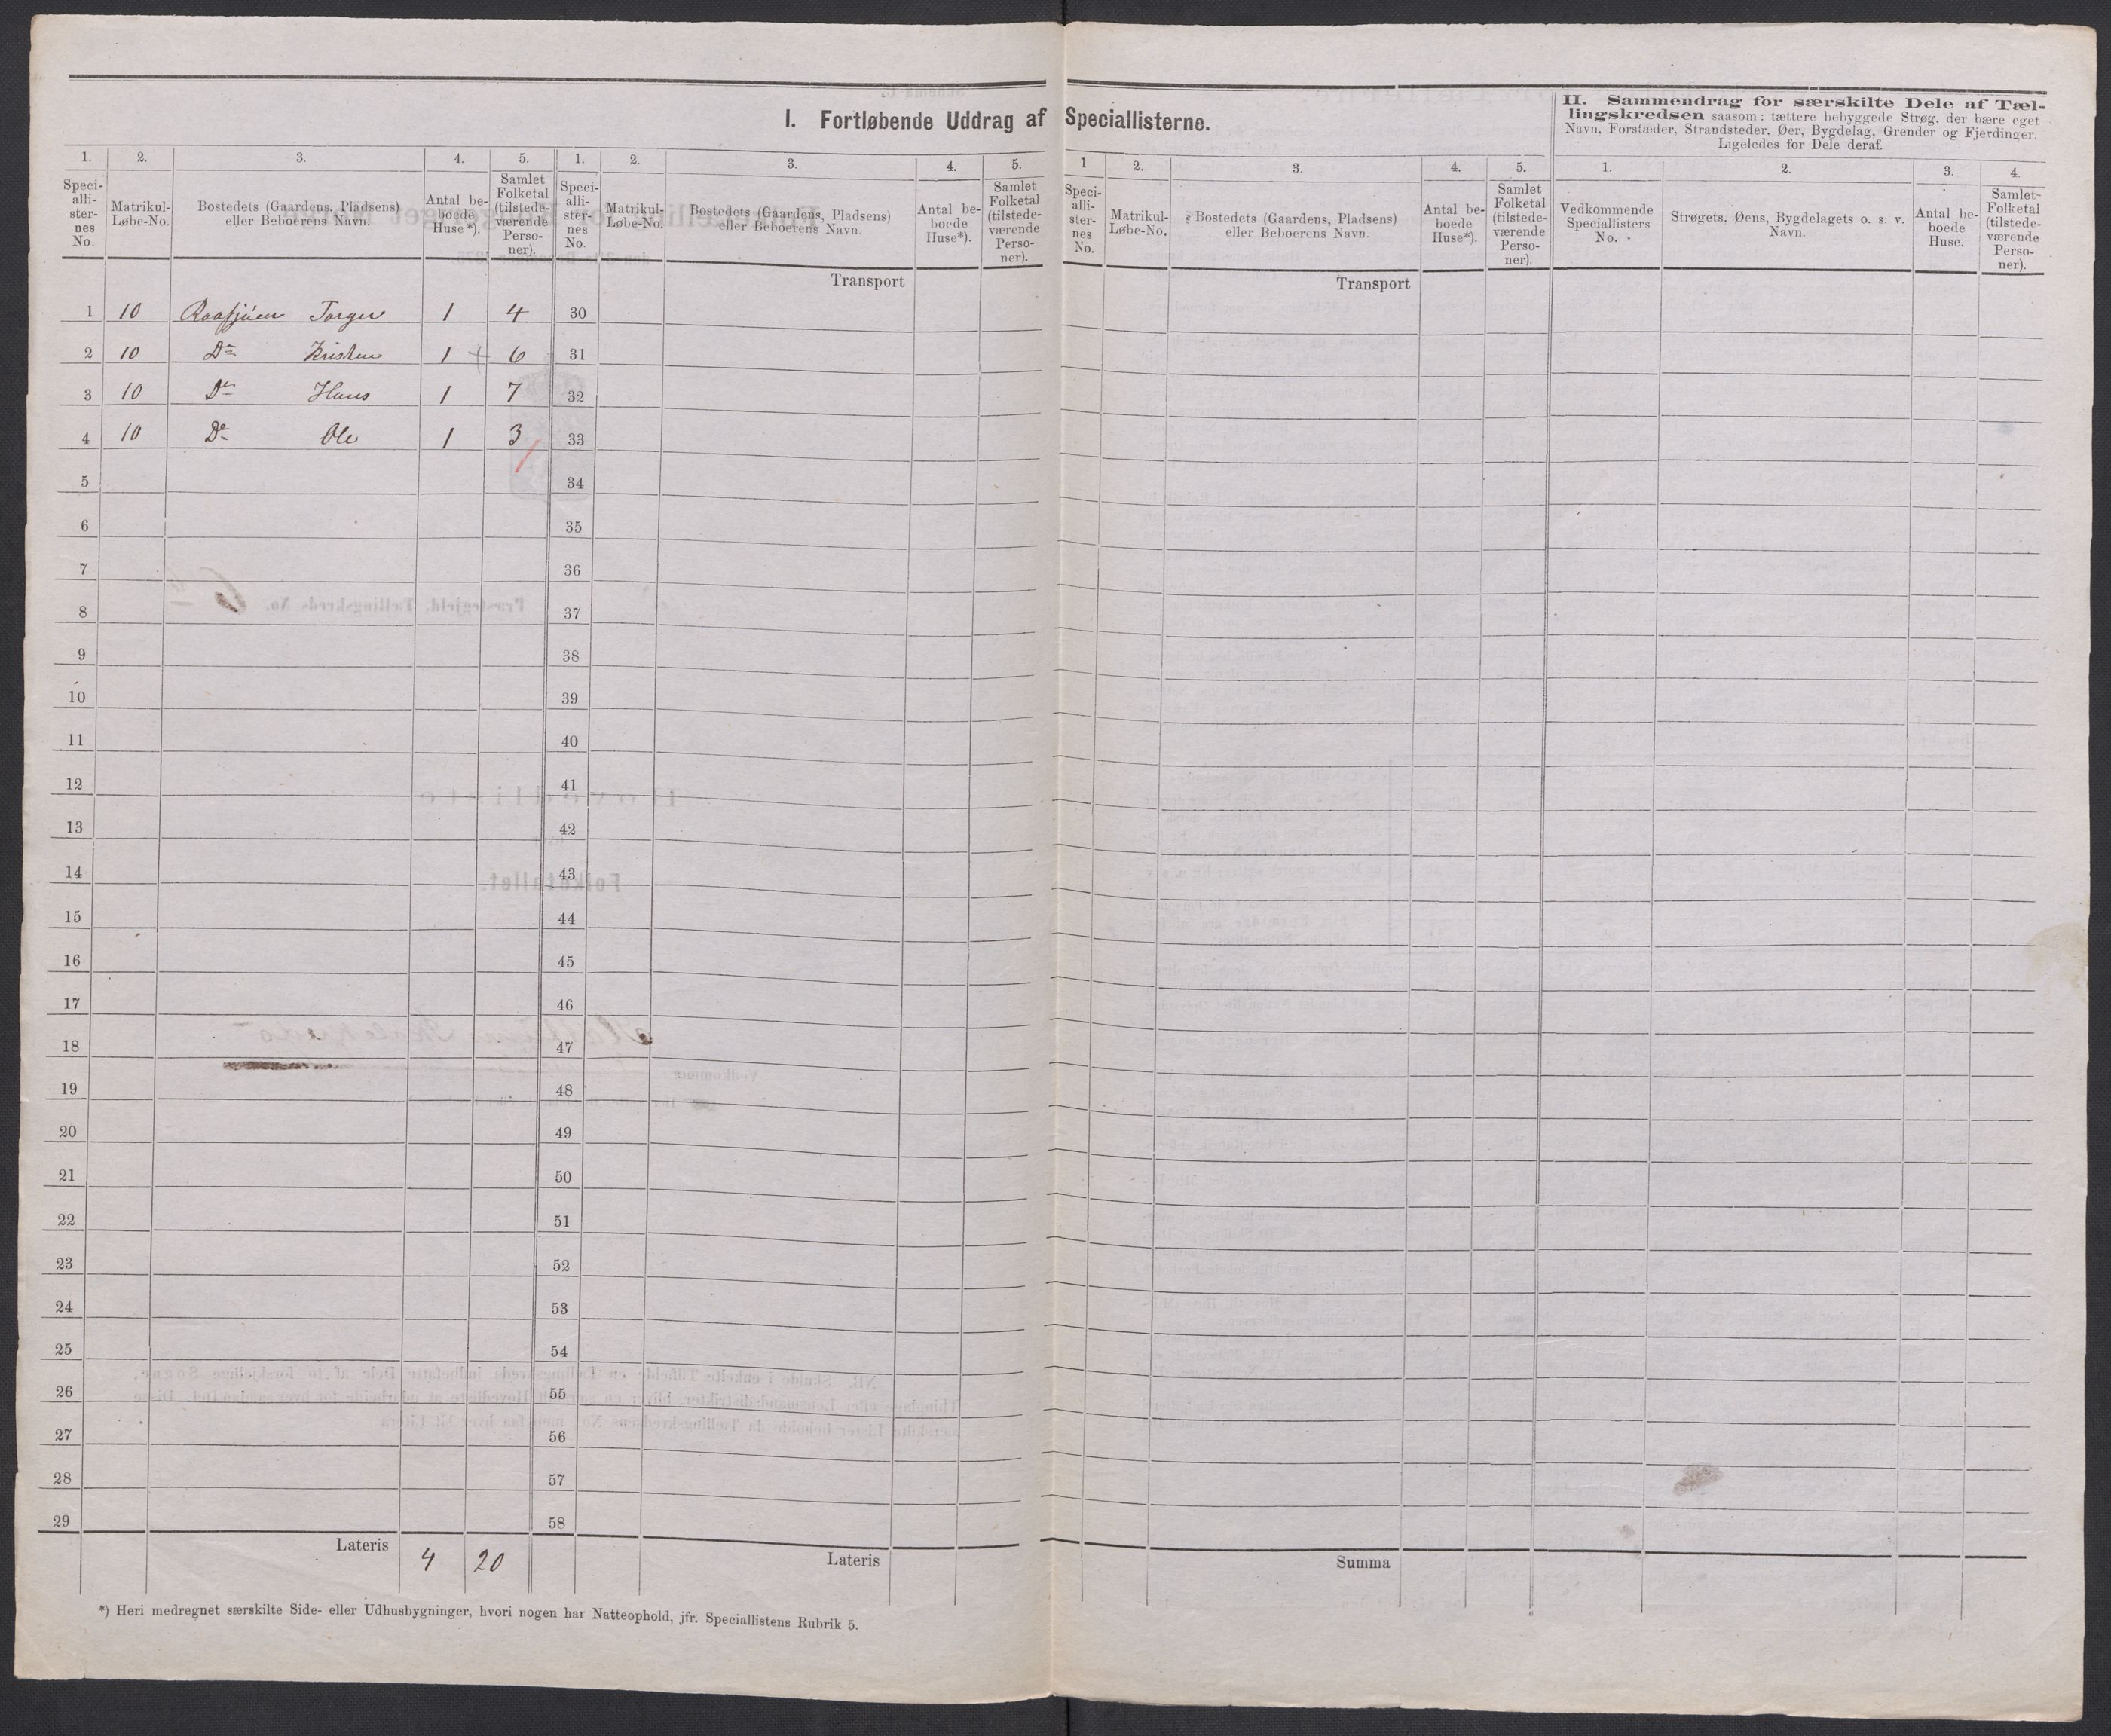 I. Fortløbende Uddrag af Speciallisterne.
II. Sammendrag for særskilte Dele af Tæl-
lingskredsen saasom: tættere bebyggede Strøg, der bære eget
Navn, Forstæder, Strandsteder, Øer, Bygdelag, Grender og Fjerdinger.
Ligeledes for Dele deraf.
1. 2. 3. 4. 5. 1. 2. 3. 4. 5. 1 2. 3. 4. 5. 1. 2. 3. 4.
Speci-
alli-
ster-
nes
No.
Matrikul-
Løbe-No.
Bostedets (Gaardens, Pladsens)
eller Beboerens Navn.
Antal be-
boede
Huse*).
Samlet
Folketal
(tilstede-
værende
Perso-
ner).
Speci-
alli-
ster-
nes
No.
Matrikul-
Løbe-No.
Bostedets (Gaardens, Pladsens)
eller Beboerens Navn.
Antal be-
boede
Huse*).
Samlet
Folketal
(tilstede-
værende
Perso-
ner).
Speci-
alli-
ster-
nes
No.
Matrikul-
Løbe-No.
Bostedets (Gaardens, Pladsens)
eller Beboerens Navn.
Antal be-
boede
Huse*).
Samlet
Folketal
(tilstede-
værende
Perso-
ner).
Vedkommende
Speciallisters
No.
Strøgets, Øens, Bygdelagets o. s. v.
Navn.
Antal be-
boede
Huse.
Samlet
Folketal
(tilstede-
værende
Perso-
ner).
Transport Transport
1 10 Torger 1 4 30
2 10 Do Kristen 1 6 31
3 10 Do Hans 1 7 32
4 10 Do Ole 1 3 33
5 34
6 35
7 36
8 37
9 38
10 39
11 40
12 41
13 42
14 43
15 44
16 45
17 46
18 47
19 48
20 49
21 50
22 51
23 52
24 53
25 54
26 55
27 56
28 57
29 58
Lateris 4 20 Lateris Summa
*) Heri medregnet særskilte Side- eller Udhusbygninger, hvori nogen har Natteophold, jfr. Speciallistens Rubrik 5.